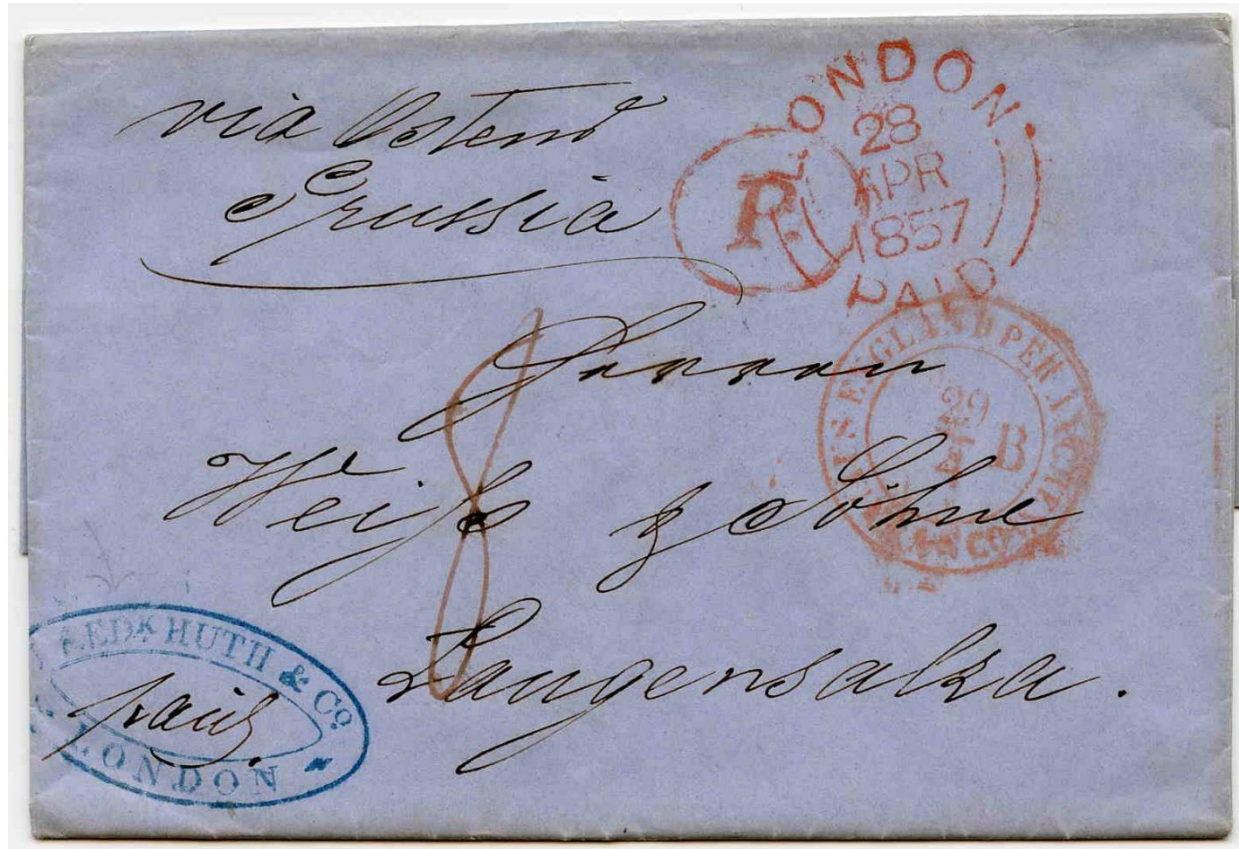 via Ostend
Prussia
P.
LONDON.
28
APR
1857
PAID
AUS ENGLAND PER AACHEN
29
4
B
FRANCO
Herren
Weiss & Söhne
Langensalza.
8
FREDK HUTH & Co
paid.
LONDON